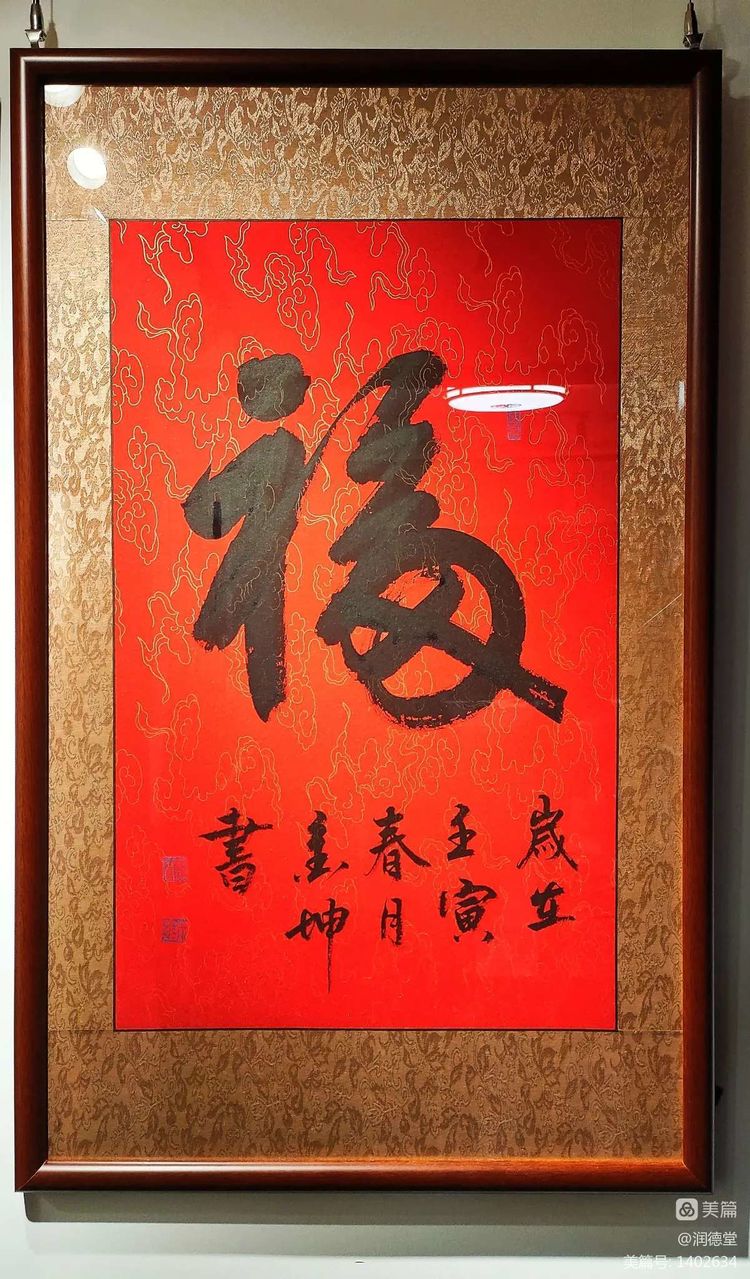 福
歲在
壬寅
春月
坤
書
美篇
@润德堂
美篇号: 1402634